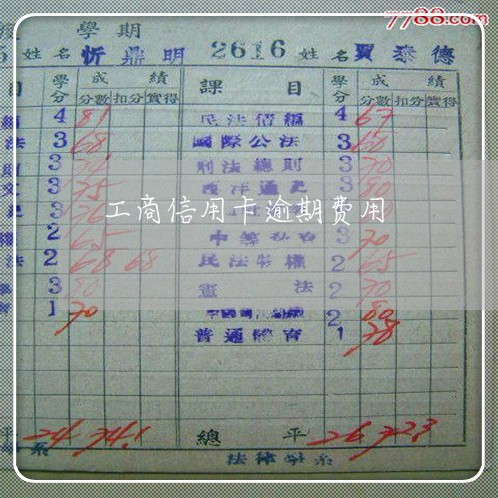 7788.com
學期
姓名 忻鼎明 2616 姓名 賈泰德
目 學分 成績 課目 學分 成績
分數 扣分 實得 分數 扣分 實得
4 81 民法債編 4 67
法 3 68 國際公法 3 60
3 刑法總則 3 70
3 75 西洋通史 3 80
工商信用卡逾期费用
2 65 3 70
法 2 68 68 民法物權 2 65
3 80 憲法 2 70
1 70 2 80
普通體育 1 78
平 24 74.1 總平 26 72.3
系 法律學系